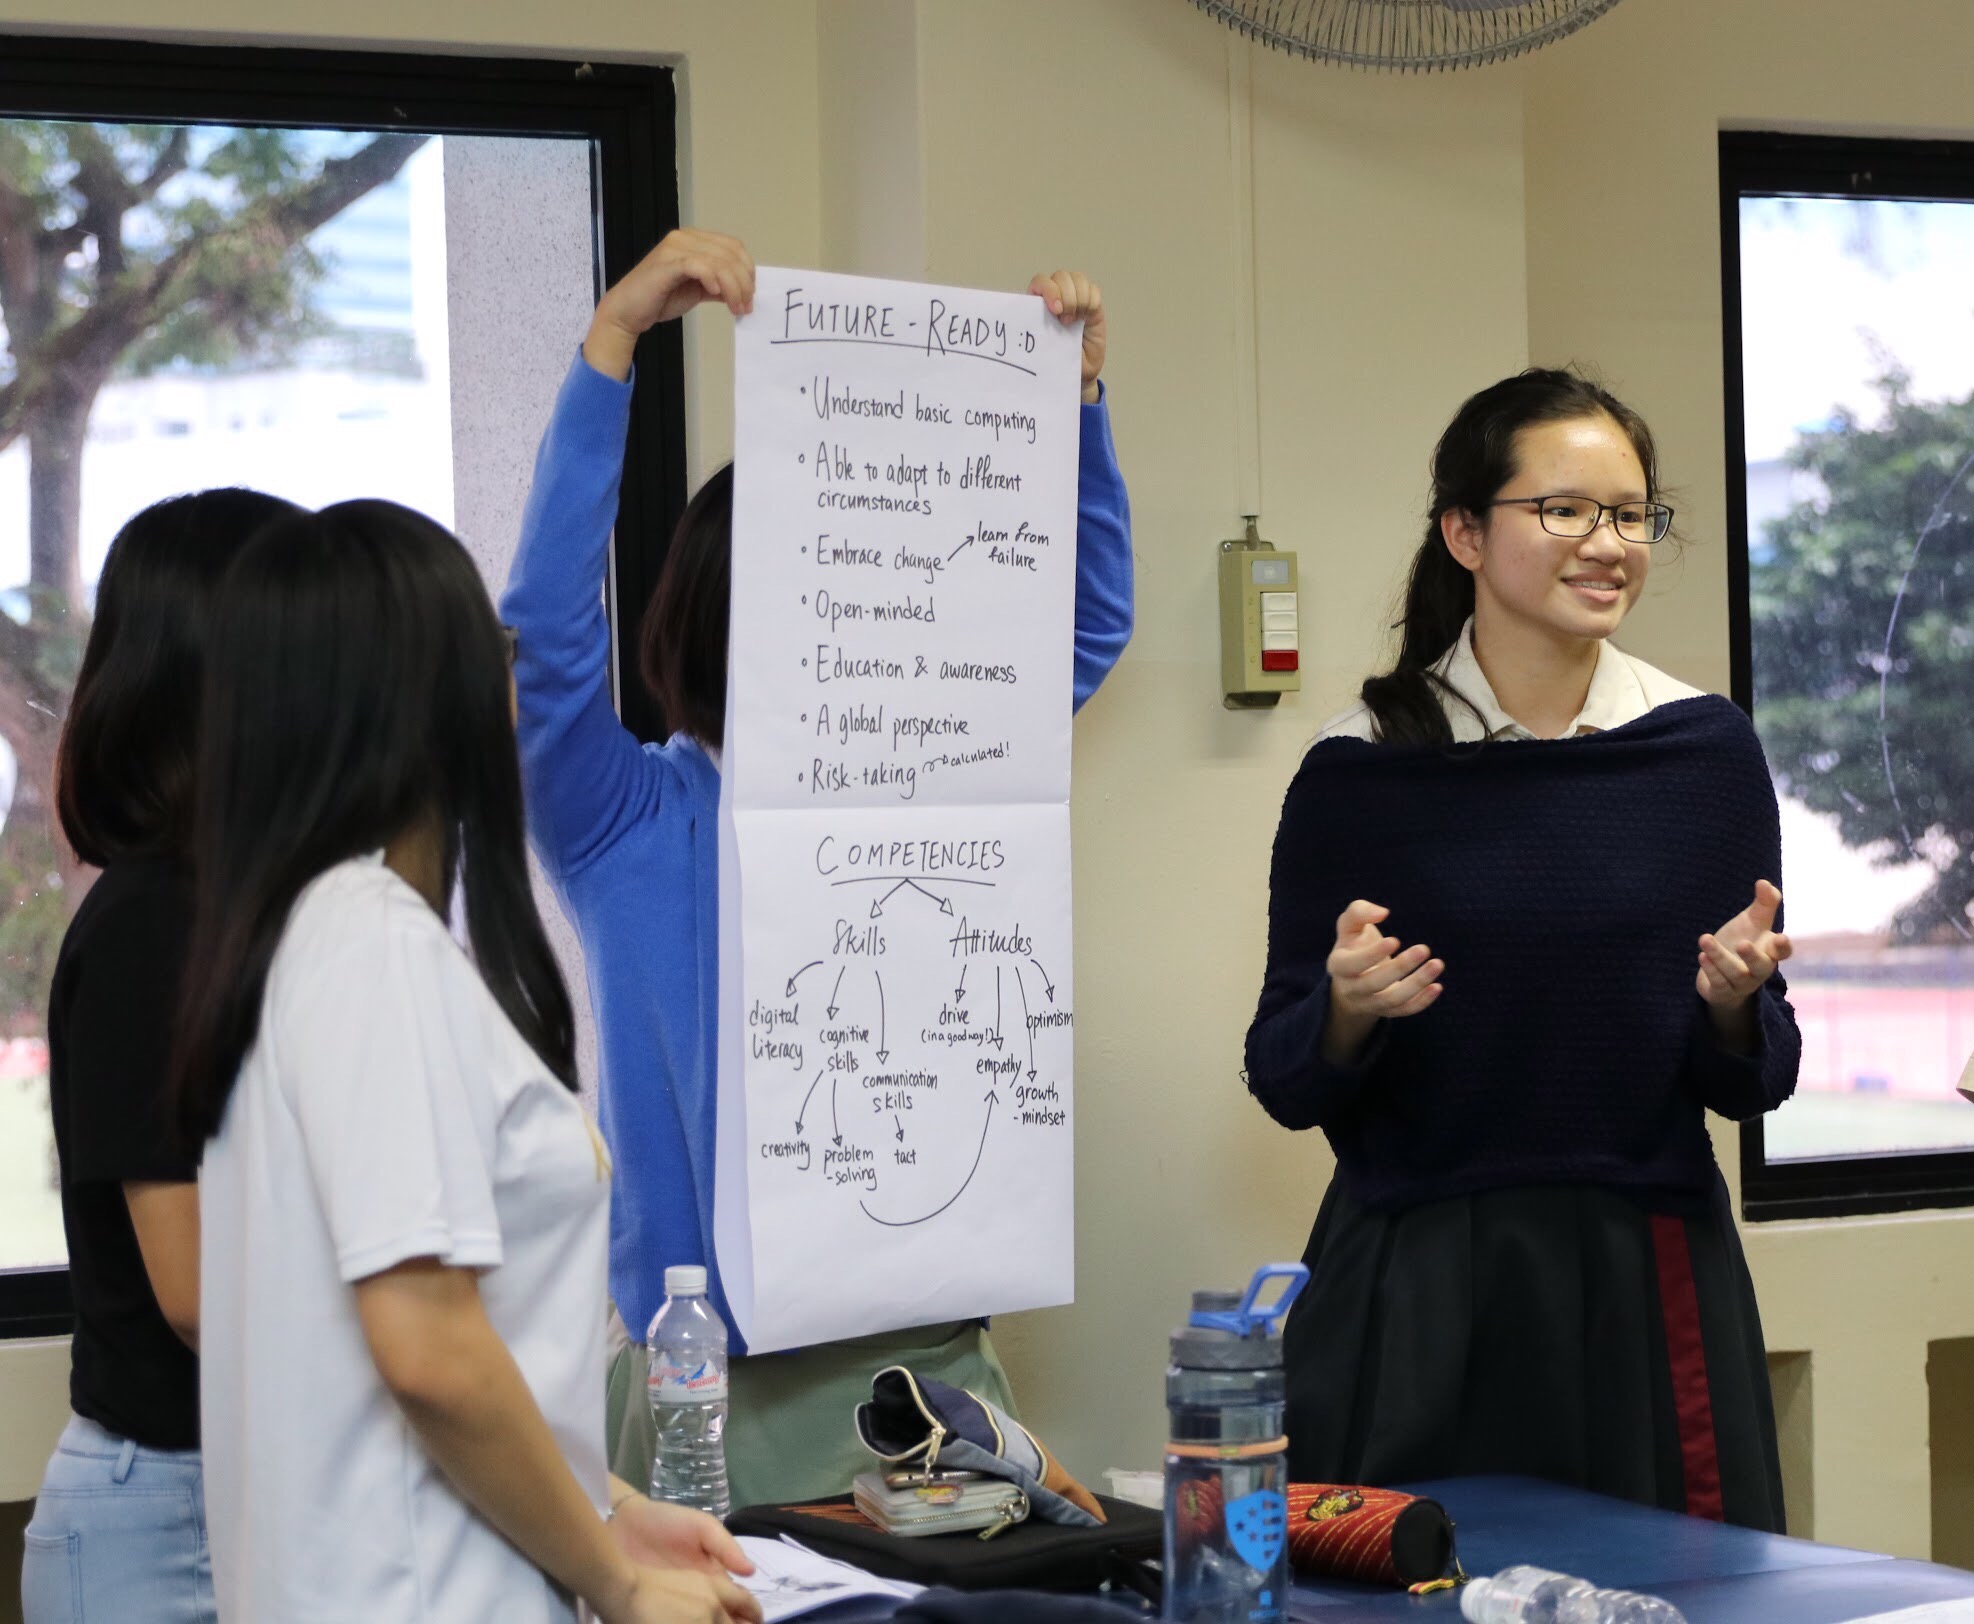 FUTURE - READY :D
• Understand basic computing
• Able to adapt to different
circumstances
• Embrace change → learn from
failure
• Open-minded
• Education & awareness
• A global perspective
• Risk-taking → calculated!
COMPETENCIES
Skills
Attitudes
digital
literacy
cognitive
skills
communication
skills
creativity
problem
-solving
tact
drive
(in a good way!)
empathy
growth
-mindset
optimism